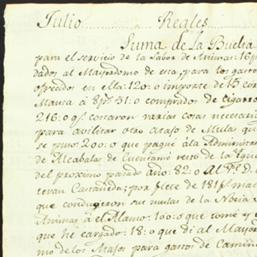 Julio Reales
Suma de la Buelta
para el servicio de la Labor de Animas: 16 p
dados al Mayordomo de esta, para los gastos
ofrecidos en ella: 120: o importe de 15 cor
Manta á 8 ps. 31: o comprados de Cigarro
216: o qe. costaron varias cosas necesaria
para avilitar otro atajo de Mulas qu
se puso: 200: o que pagué á la Administra
de Alcabala de Cuencamé resto de la Igua
del proximo pasado año: 82: o Al Pe. D.
tevan Castañeda; por flete de 181
que condugeron sus mulas de la Noria
Animas á el Alamo: 100: o que tomé y
que he cargado: 18: o que di al Mayor
mo de los Atajos para gastos de Camin